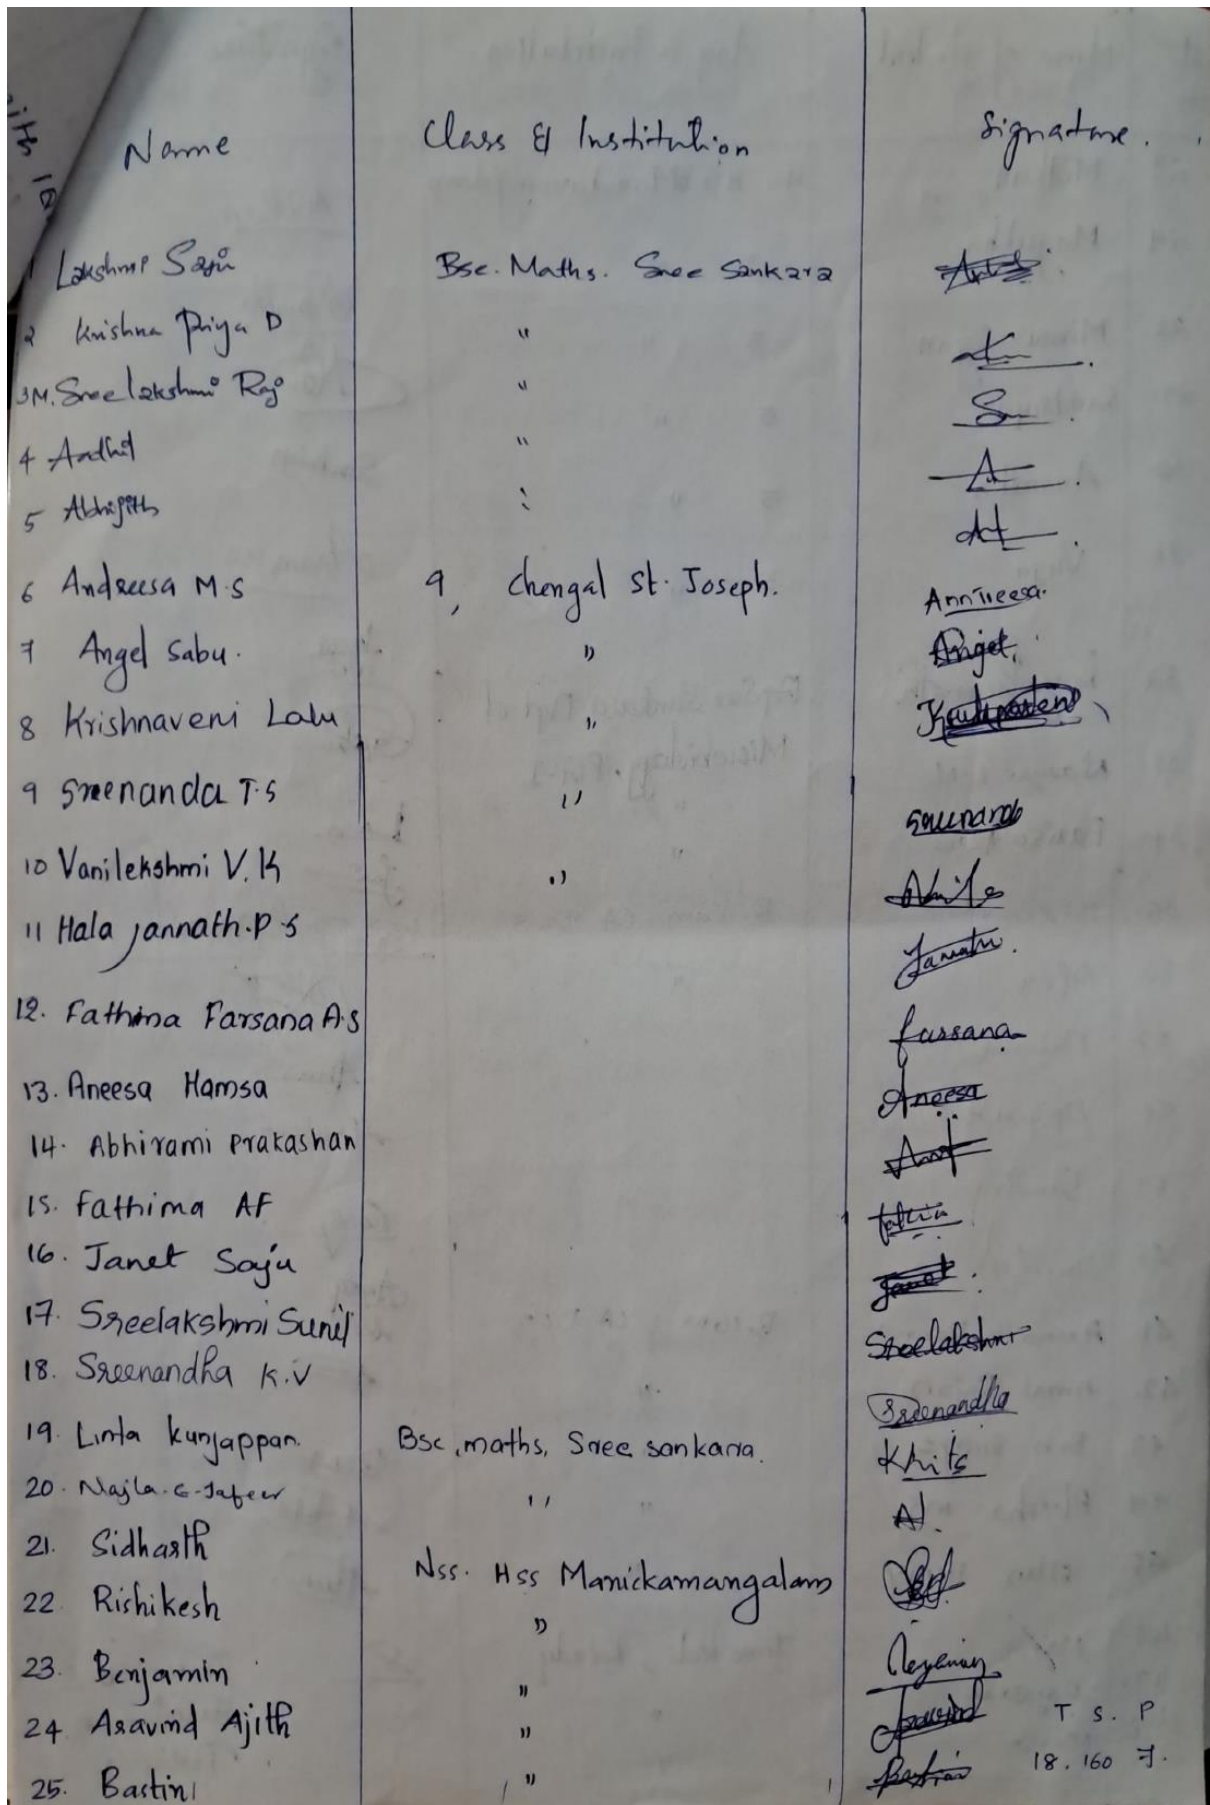 Name Class & Institution Signature.
1 Lakshmi Saju Bsc. Maths. Sree Sankara
2 Krishna Priya D "
3 M. Sreelakshmi Raj "
4 Aadhil "
5 Abhijith "
6 Andreesa M.S 9, Chengal St. Joseph. Annreesa.
7 Angel Sabu. " Angel.
8 Krishnaveni Lalu "
9 Sreenanda T.S " Sreenanda
10 Vanilekshmi V.K "
11 Hala Jannath.P S Jannath.
12. Fathima Farsana A.S farsana
13. Aneesa Hamsa Aneesa
14. Abhirami Prakashan
15. Fathima AF
16. Janet Saju Janet.
17. Sreelakshmi Sunil Sreelakshmi
18. Sreenandha K.V Sreenandha
19. Linta Kunjappan. Bsc, maths, Sree sankara.
20. Najla. "
21. Sidharth Nss. Hss Manickamangalam
22. Rishikesh "
23. Benjamin "
24 Aravind Ajith " Aravind T S. P
25. Bastin " Bastin 18. 160 7.